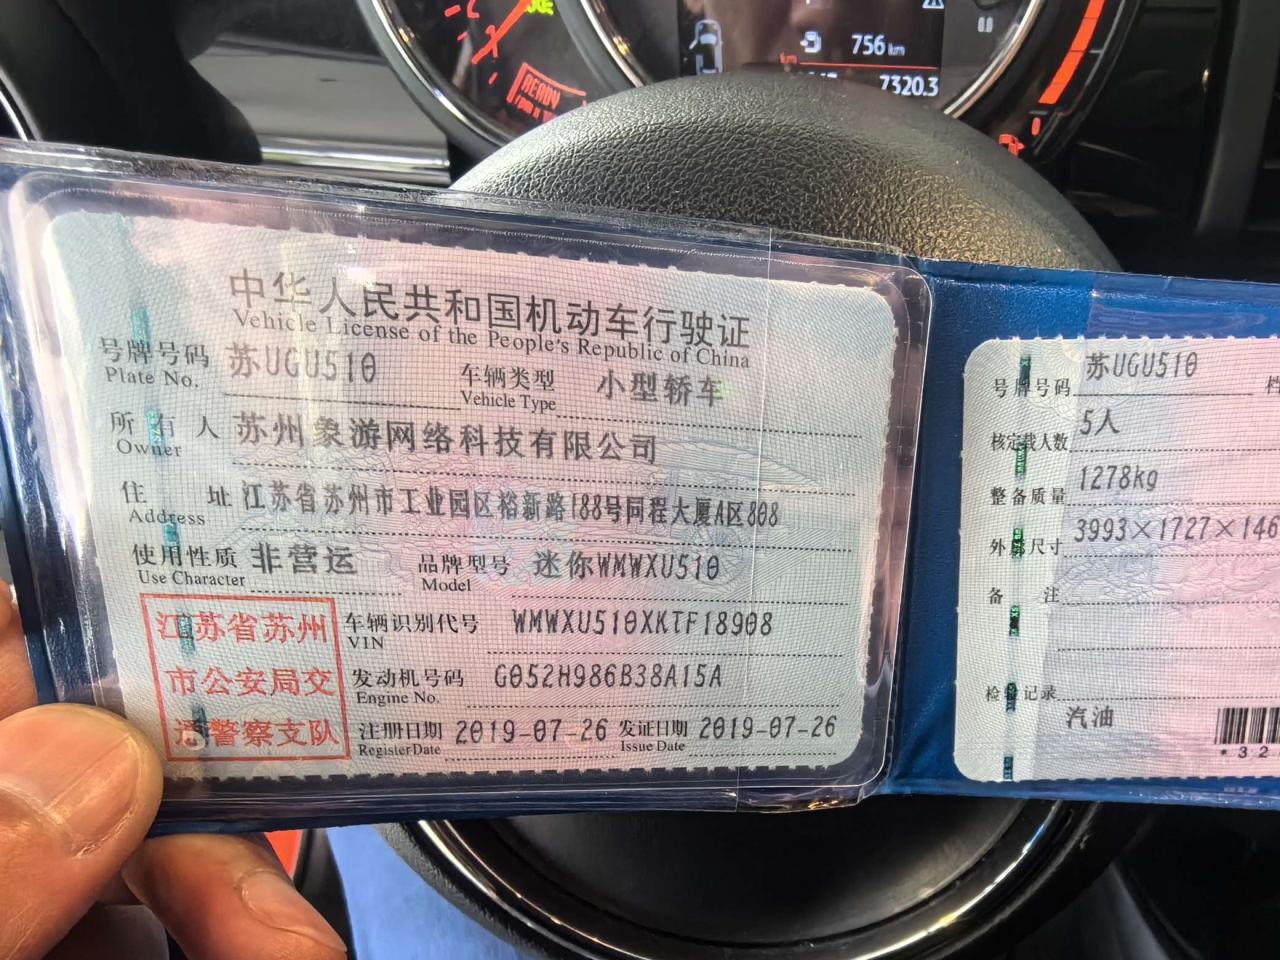 756 km
7320.3
READY
中华人民共和国机动车行驶证
Vehicle License of the People's Republic of China
号牌号码 苏UGU510 车辆类型 小型轿车
Plate No. Vehicle Type
所有人 苏州象游网络科技有限公司
Owner
住址 江苏省苏州市工业园区裕新路188号同程大厦A区808
Address
使用性质 非营运 品牌型号 迷你WMWXU510
Use Character Model
江苏省苏州
市公安局交
通警察支队
车辆识别代号 WMWXU510XKTF18908
VIN
发动机号码 G052H986B38A15A
Engine No.
注册日期 2019-07-26 发证日期 2019-07-26
Register Date Issue Date
号牌号码 苏UGU510 档
核定载人数 5人
整备质量 1278kg
外廓尺寸 3993×1727×146
备注
检验记录
汽油
*32